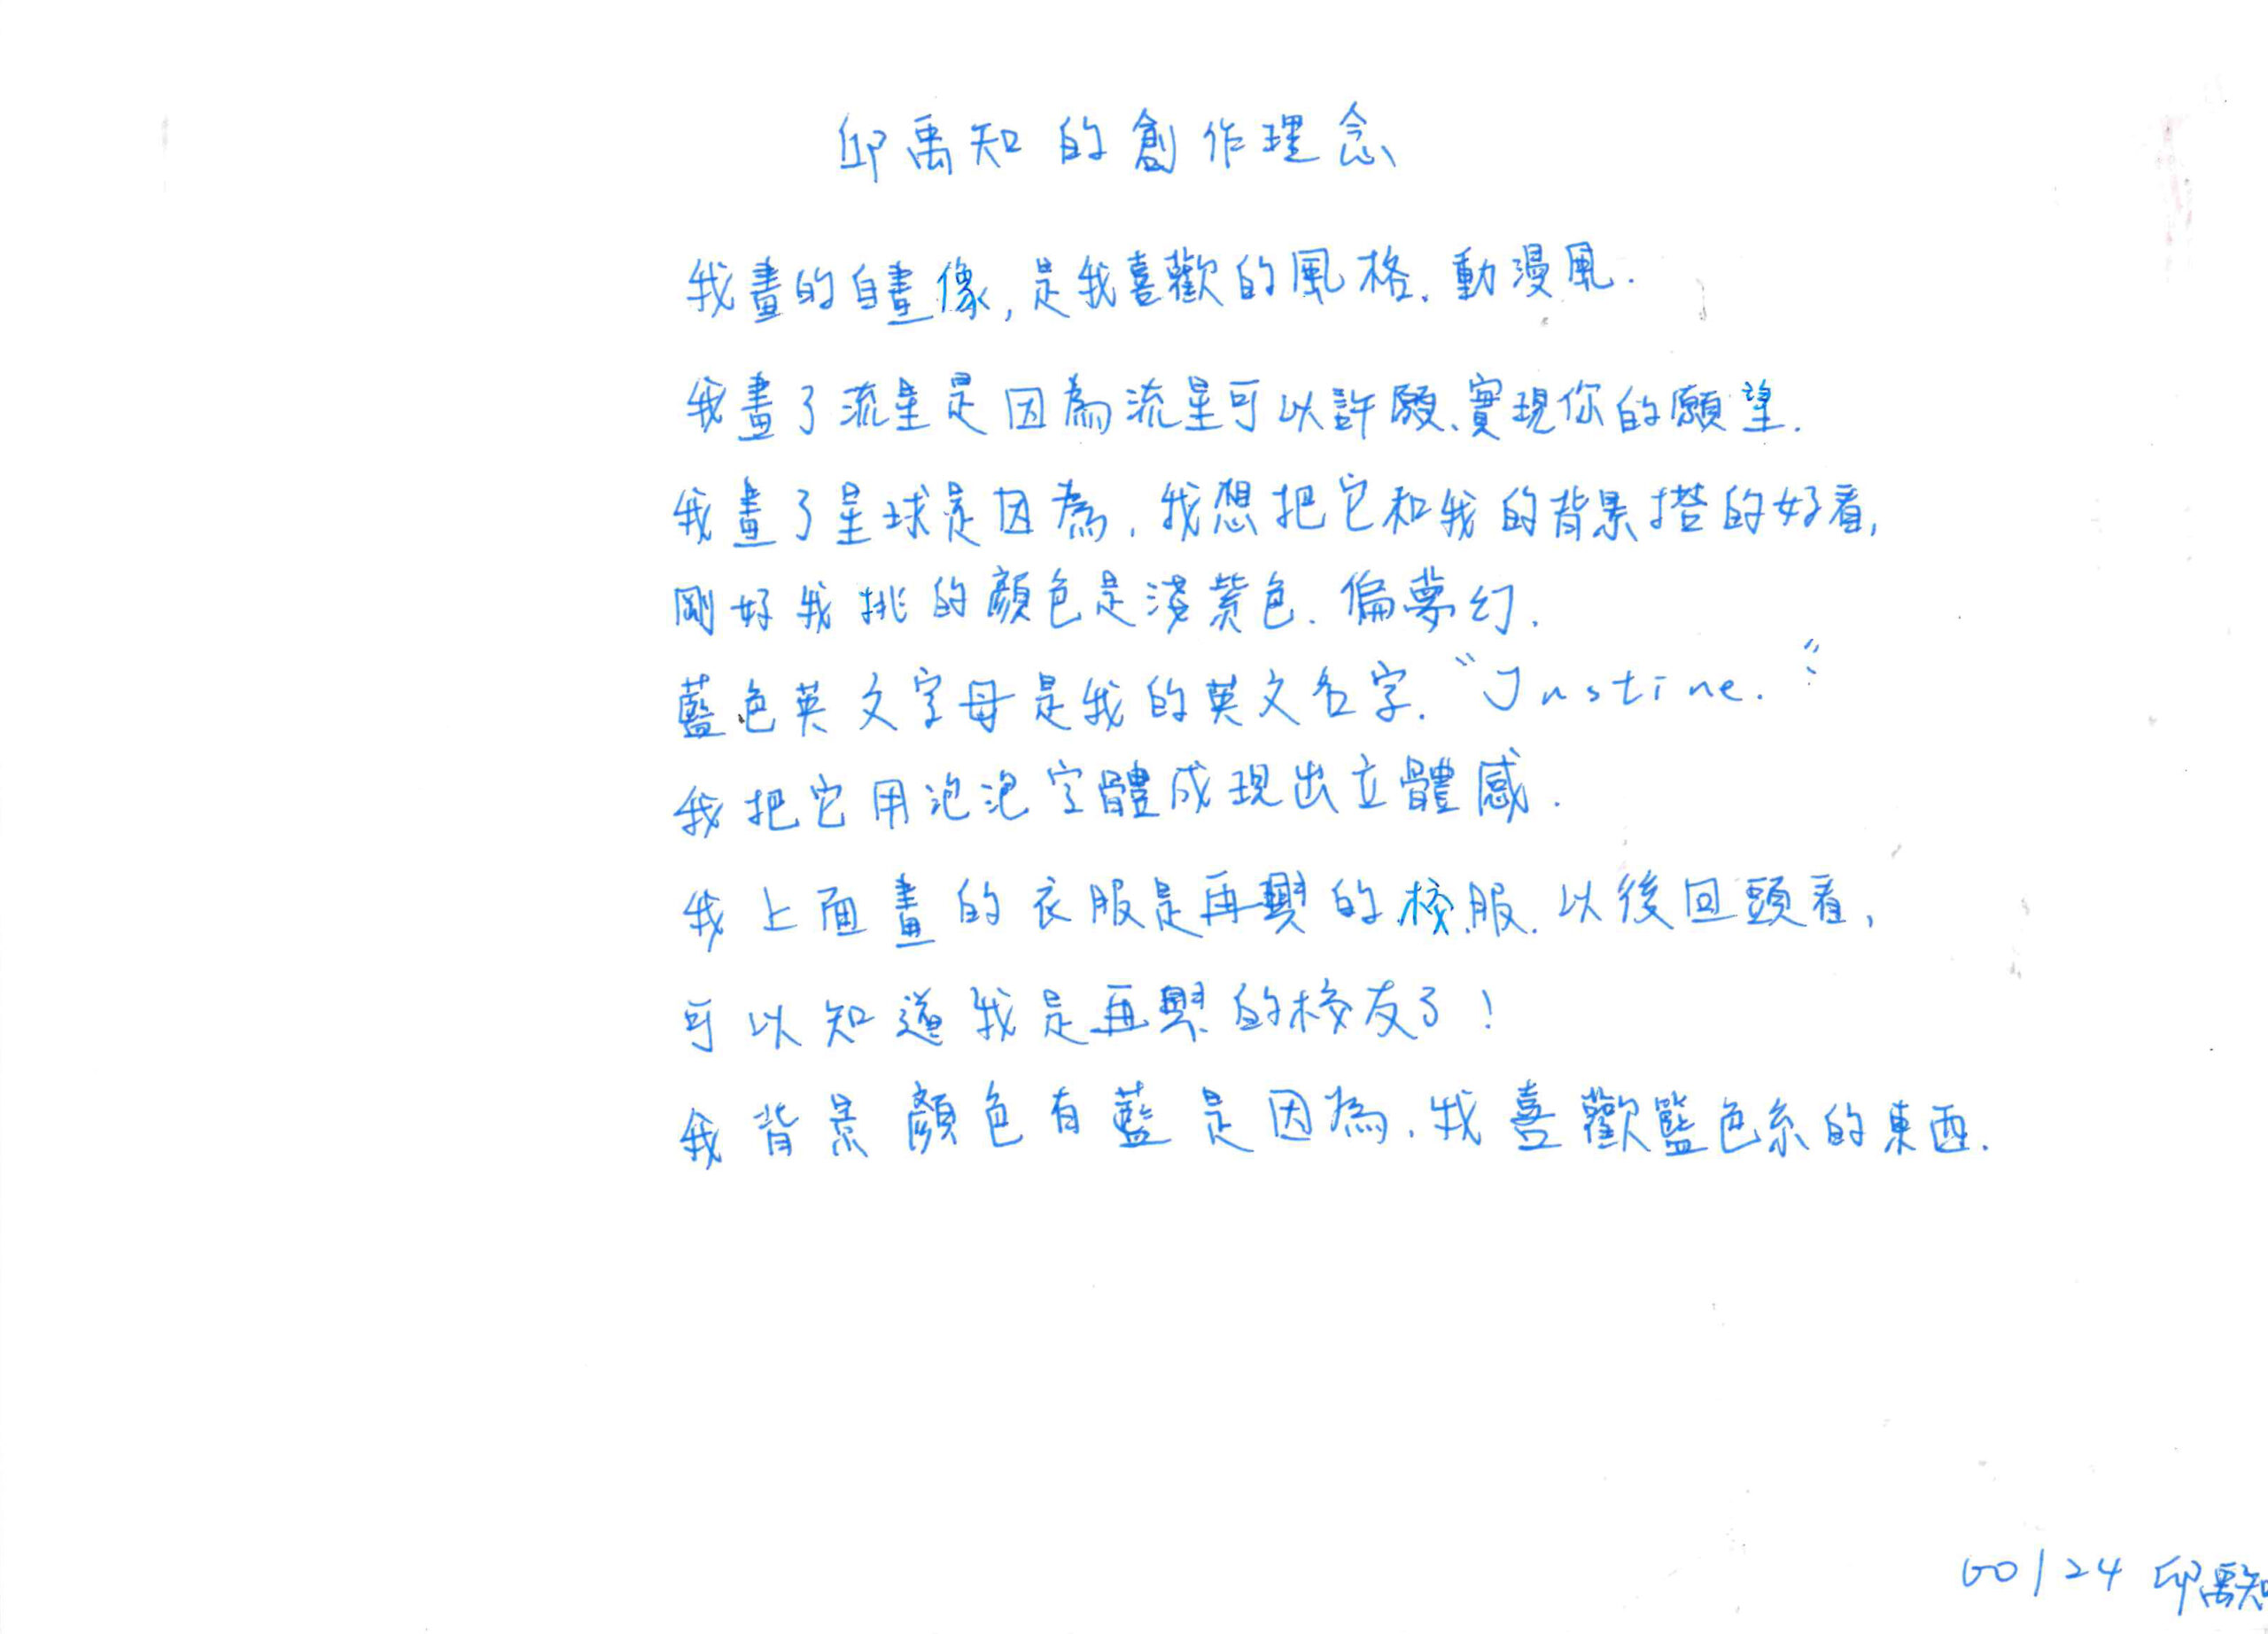 邱禹知的創作理念
我畫的自畫像,是我喜歡的風格.動漫風.
我畫了流星是因為流星可以許願、實現你的願望.
我畫了星球是因為,我想把它和我的背景搭的好看,
剛好我挑的顏色是淺紫色.偏夢幻.
藍色英文字母是我的英文名字.“Justine.”
我把它用泡泡字體成現出立體感.
我上面畫的衣服是再興的校服.以後回頭看,
可以知道我是再興的校友了!
我背景顏色有藍是因為,我喜歡籃色系的東西.
60124 邱禹知